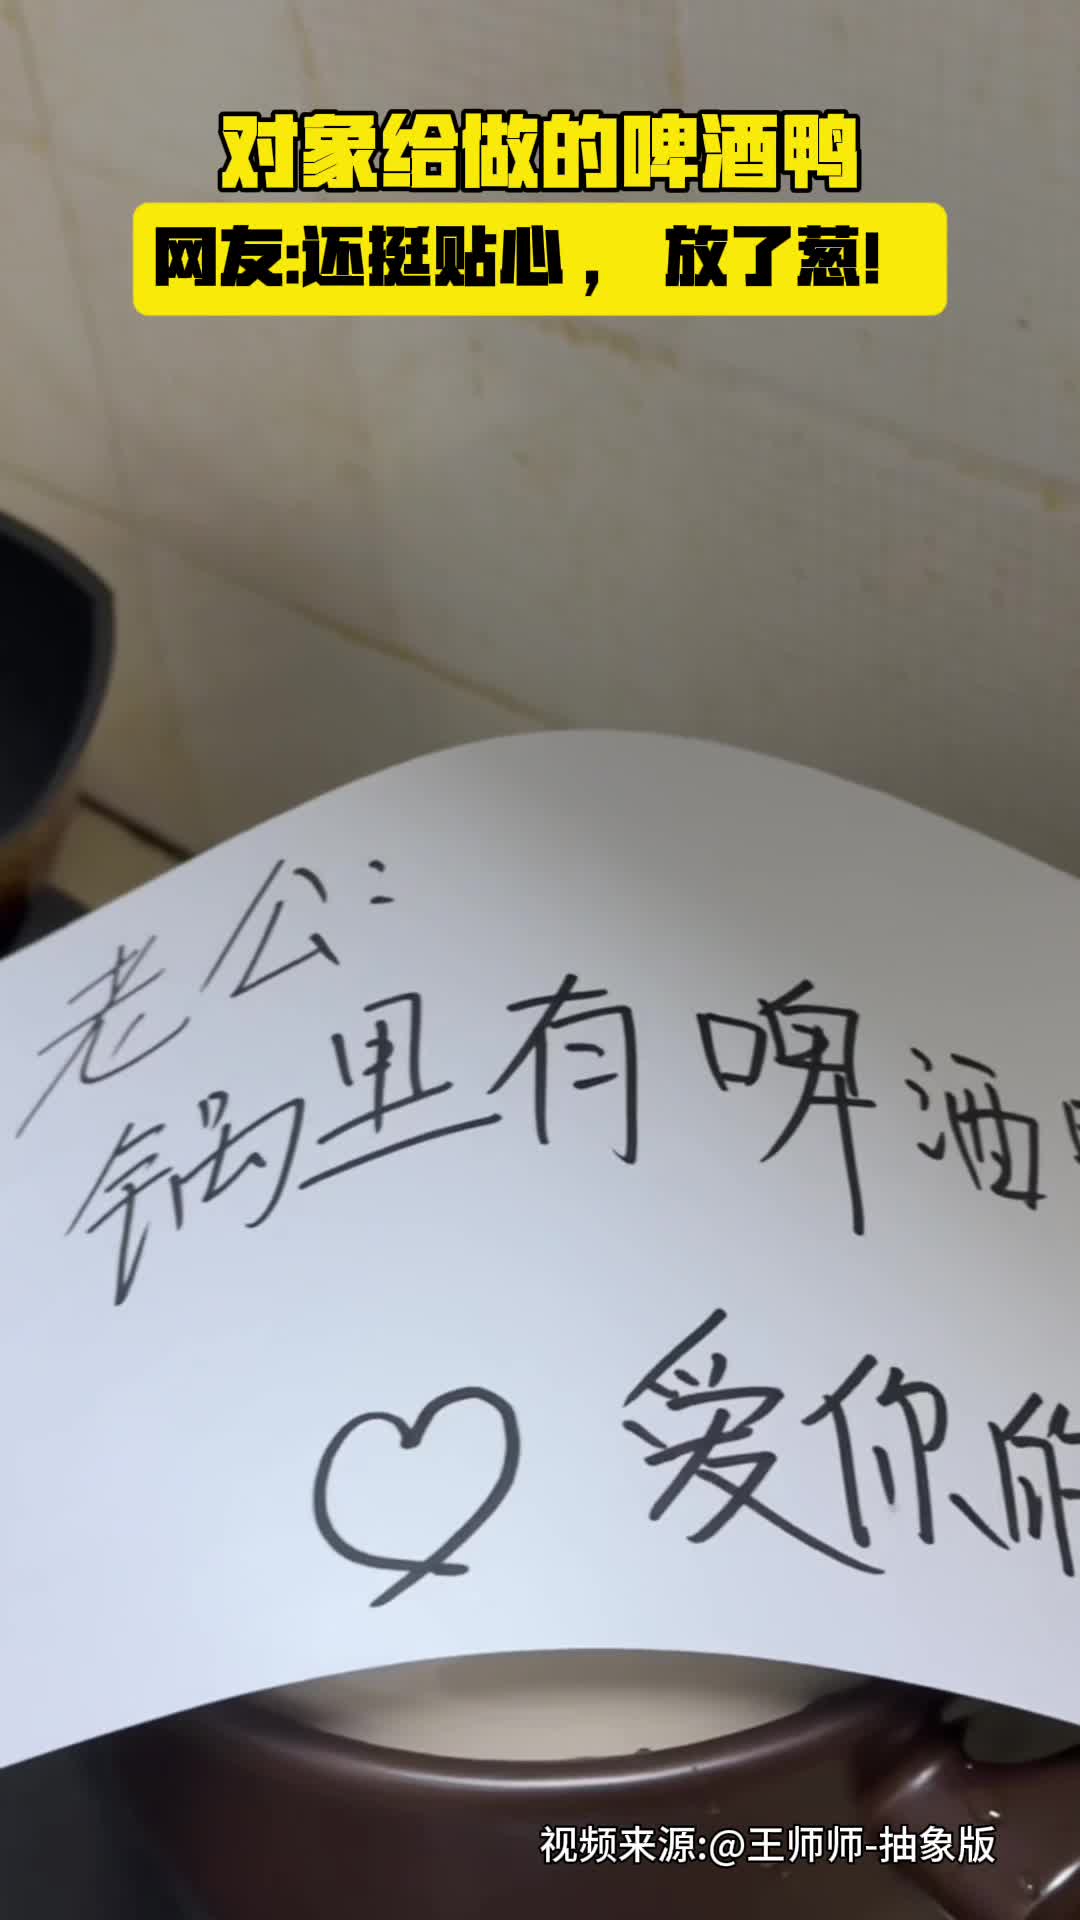 对象给做的啤酒鸭
网友:还挺贴心， 放了葱!
老公:
锅里有啤酒
爱你的
视频来源:@王师师-抽象版